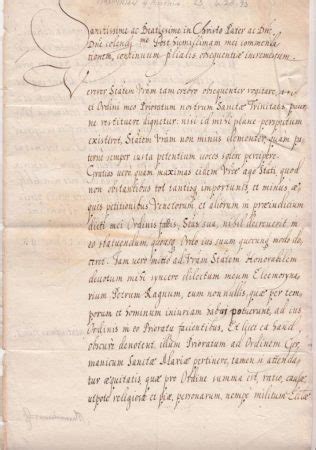 Sanctissime ac Beatissime in Christo Pater ac Dñe
Dñe colendme Post humillimam mei commenda
tionem, continuum filialis obsequentiæ incrementum.
Vram tam crebro obsequenter rogitare,
Ordini meo Prioratum nostrum Sanctæ Trinitatis,
restituere dignetur: nisi id mihi plane perspectum
existeret, Statem Vram non minus clementer, quam pa
terne semper iusta petentium voces solere percipere.
Gratias vero quam maximas eidem Vræ ago Stati, quod
non obstantibus tot tantisq importunis, et minus æ
quis petitionibus Venetorum, et aliorum in præiudicium
dicti mei Ordinis factis, Stas sua, nihil decreverit
eo statuendum, Ordo ius suum quærung modo do
ceret. Iam vero mitto ad Vram Statem Honorabilem
devotum mihi syncere dilectum meum Eleemosyna
rium Petrum Ragnum, cum nonnullis, quæ per tem
porum et hominum iniuriam haberi potuerunt, ad ius
Ordinis in eo Prioratu facientibus. Et licet ea haud
obscure denotent, illum Prioratum ad Ordinem Ger
manicum Sanctæ Mariæ pertinere, tamen si attenda
tur æquitatis, quæ pro Ordine summa est, ratio, causæ
utpote religiosæ et piæ, personarum, nempe militum Ecclæ